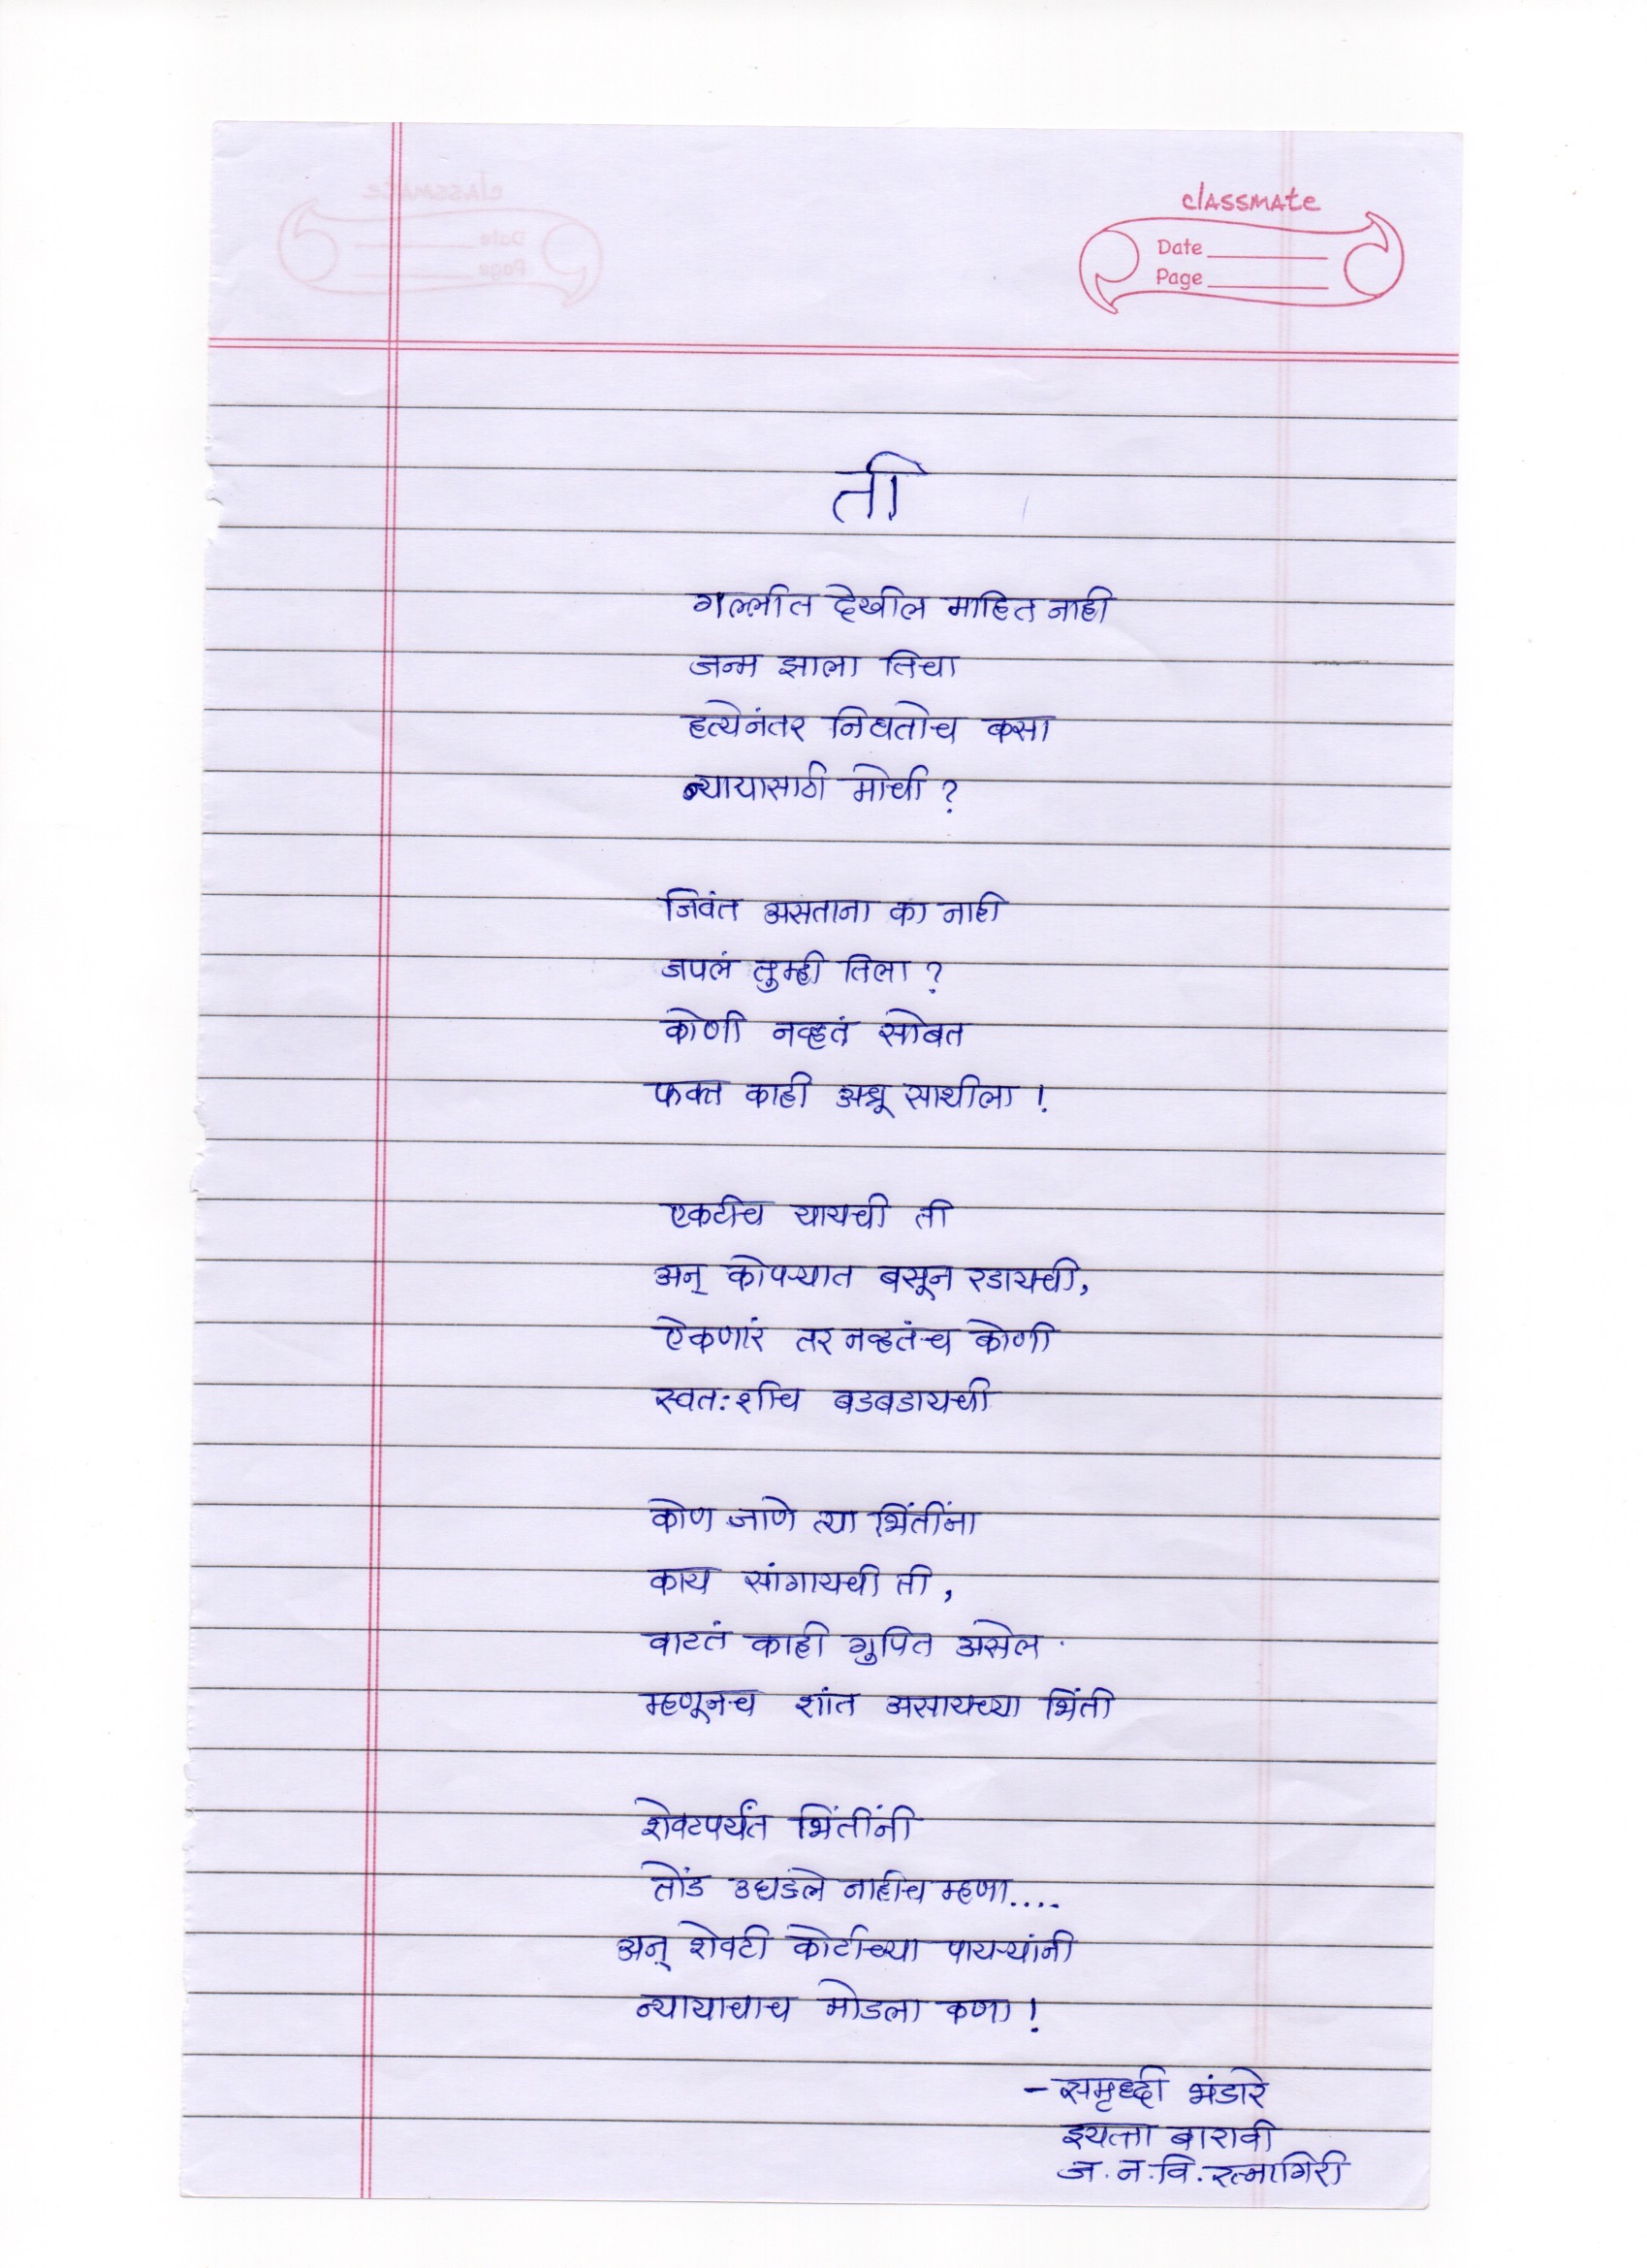 classmate
Date
Page
ती
गल्लीत देखील माहित नाही
जन्म झाला तिचा
हत्येनंतर निघतोच कसा
न्यायासाठी मोर्चा ?
जिवंत असताना का नाही
जपलं तुम्ही तिला ?
कोणी नव्हतं सोबत
फक्त काही अश्रू साथीला !
एकटीच यायची ती
अन् कोपऱ्यात बसून रडायची,
ऐकणारं तर नव्हतंच कोणी
स्वत:शीच बडबडायची
कोण जाणे त्या भिंतींना
काय सांगायची ती ,
वाटतं काही गुपित असेल
म्हणूनच शांत असायच्या भिंती
शेवटपर्यंत भिंतींनी
तोंड उघडंले नाहीच म्हणा....
अन् शेवटी कोर्टाच्या पायऱ्यांनी
न्यायाचाच मोडला कणा !
- समृध्दी भंडारे
इयत्ता बारावी
ज. न. वि. रत्नागिरी